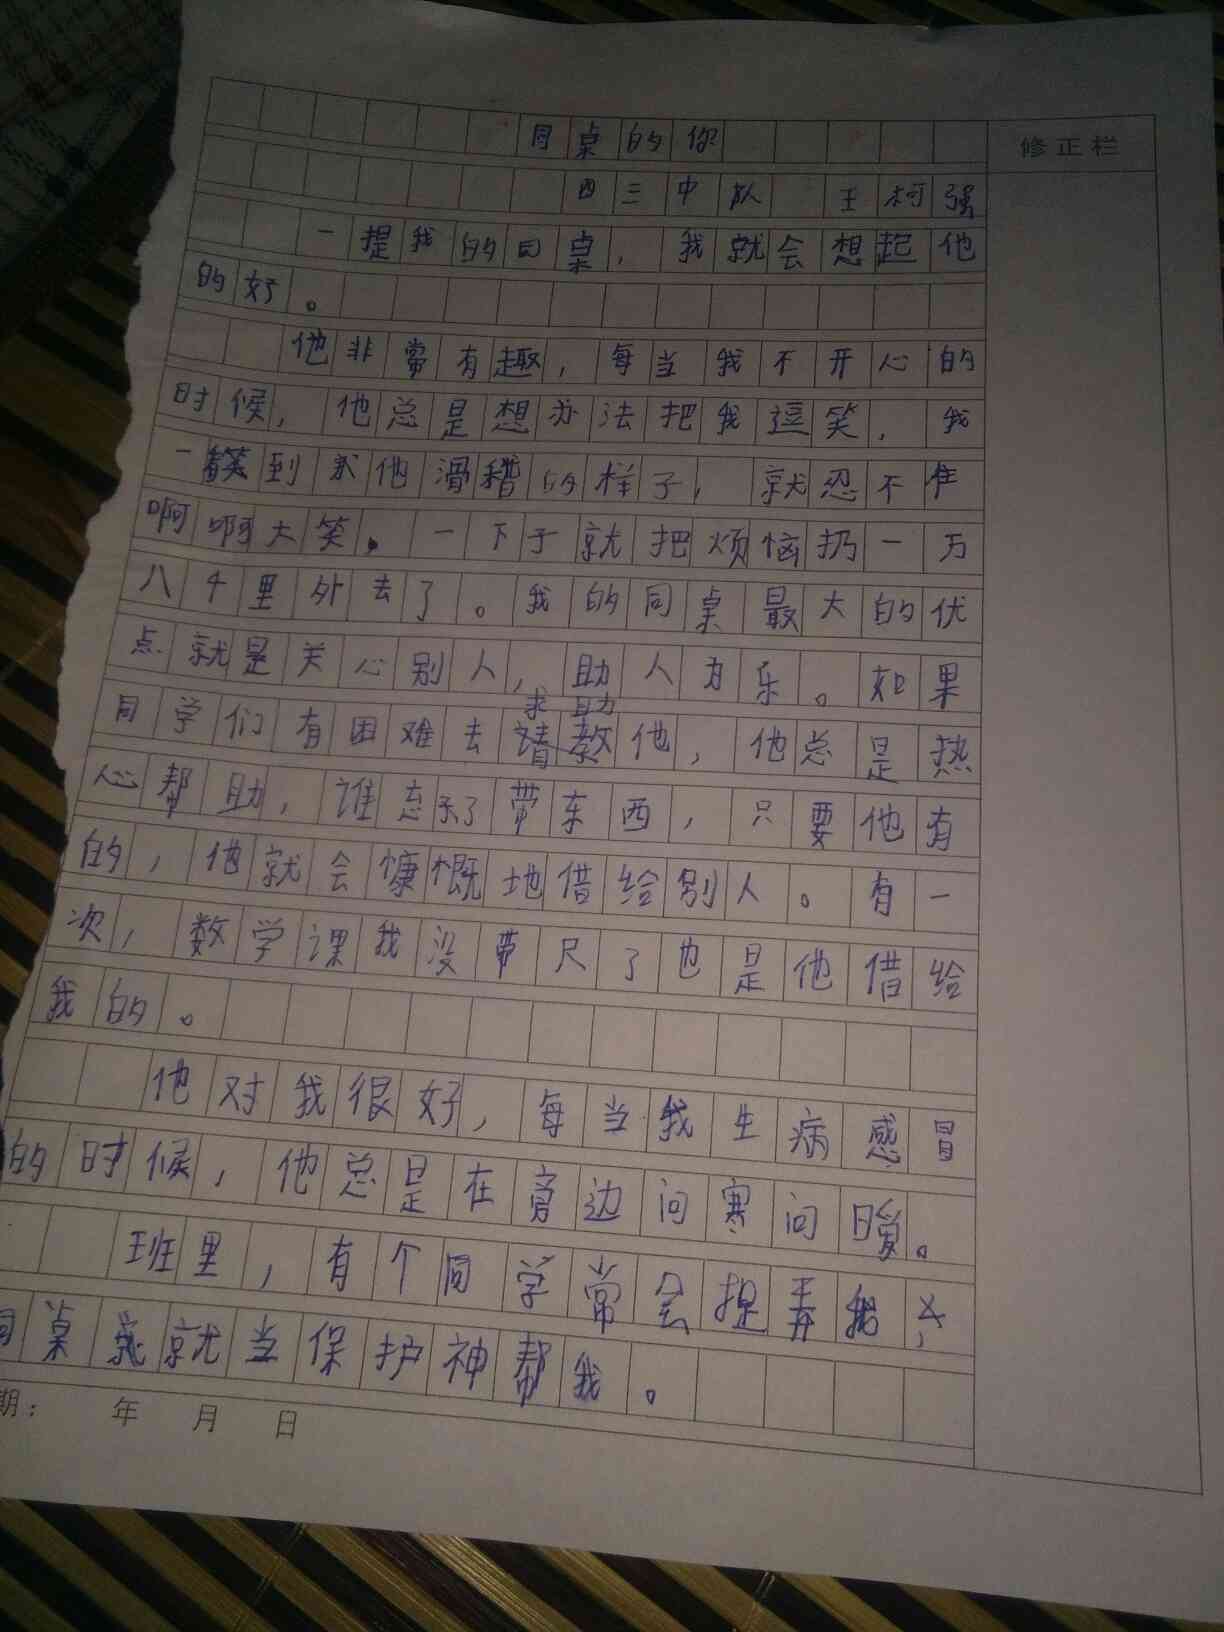 同桌的你
修正栏
四三中队 王柯强
一提我的同桌，我就会想起他
的好。
他非常有趣，每当我不开心的
时候，他总是想办法把我逗笑，我
一到他滑稽的样子，就忍不住
啊啊大笑。一下子就把烦恼扔一万
八千里外去了。我的同桌最大的优
点就是关心别人，助人为乐。如果
求助
同学们有困难去他，他总是热
心帮助，谁忘了带东西，只要他有
的，他就会慷慨地借给别人。有一
次，数学课我没带尺了也是他借给
我的。
他对我很好，每当我生病感冒
的时候，他总是在旁边问寒问暖。
班里，有个同学常会捉弄我，
同桌就当保护神帮我。
期： 年 月 日